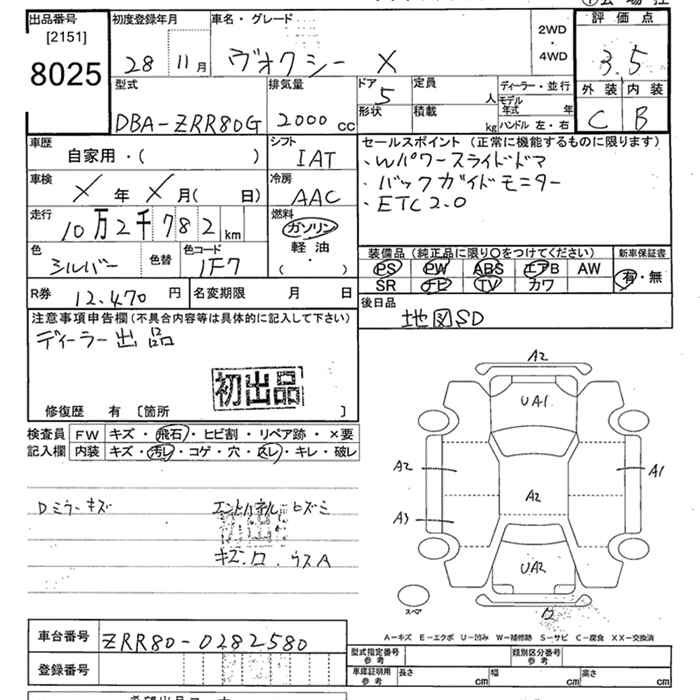 出品番号 初度登録年月 車名・グレード 評価点
[2151]
8025
28 11月 ヴォクシー X 2WD・4WD 3.5
型式 排気量 ドア 5 定員 人 ディーラー・並行 外装 内装
形状 積載 kg モデル年式 年
DBA-ZRR80G 2000cc ハンドル 左・右 C B
車歴 シフト セールスポイント(正常に機能するものに限ります)
自家用・( ) IAT ・Wパワースライドドア
車検 冷房 ・バックガイドモニター
X年X月( 日) AAC ・ETC2.0
走行 燃料
10万2千782km ガソリン
軽油
・( )
色 色替 色コード 装備品(純正品に限り○をつけてください) 新車保証書
シルバー 1F7 PS PW ABS エアB AW 有・無
SR ナビ TV カワ
R券 12.470円 名変期限 月 日 後日品
地図SD
注意事項申告欄(不具合内容等は具体的に記入して下さい)
ディーラー出品
初出品
修復歴 有 [箇所 ]
検査員 FW キズ・飛石・ヒビ割・リペア跡・×要
記入欄 内装 キズ・汚レ・コゲ・穴・スレ・キレ・破レ
Dミラーキズ
キズ.ロ.ウスA
A2
UA1
A2 A1
A2
A3
UA2
スペア
A-キズ E-エクボ U-凹み W-補修跡 S-サビ C-腐食 XX-交換済
車台番号 ZRR80-0282580
型式指定番号 参考 類別区分番号 参考
登録番号 車庫証明用 参考 長さ cm 幅 cm 高さ cm